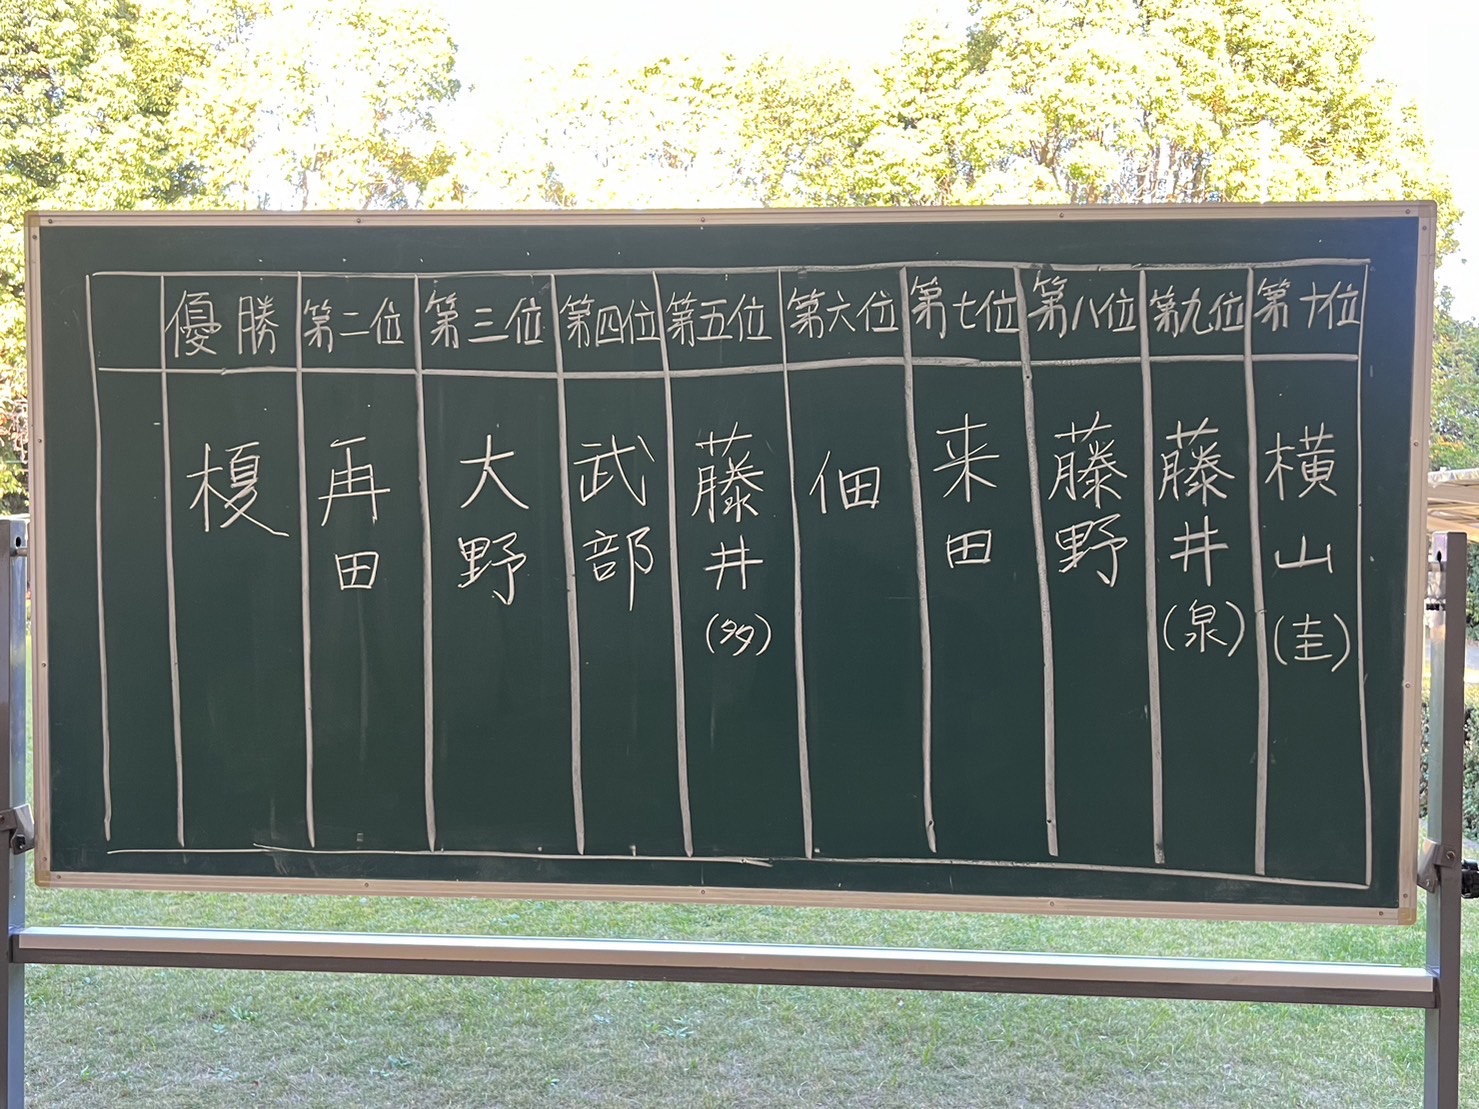 優勝
第二位
第三位
第四位
第五位
第六位
第七位
第八位
第九位
第十位
榎
再田
大野
武部
藤井(多)
佃
来田
藤野
藤井(泉)
横山(圭)